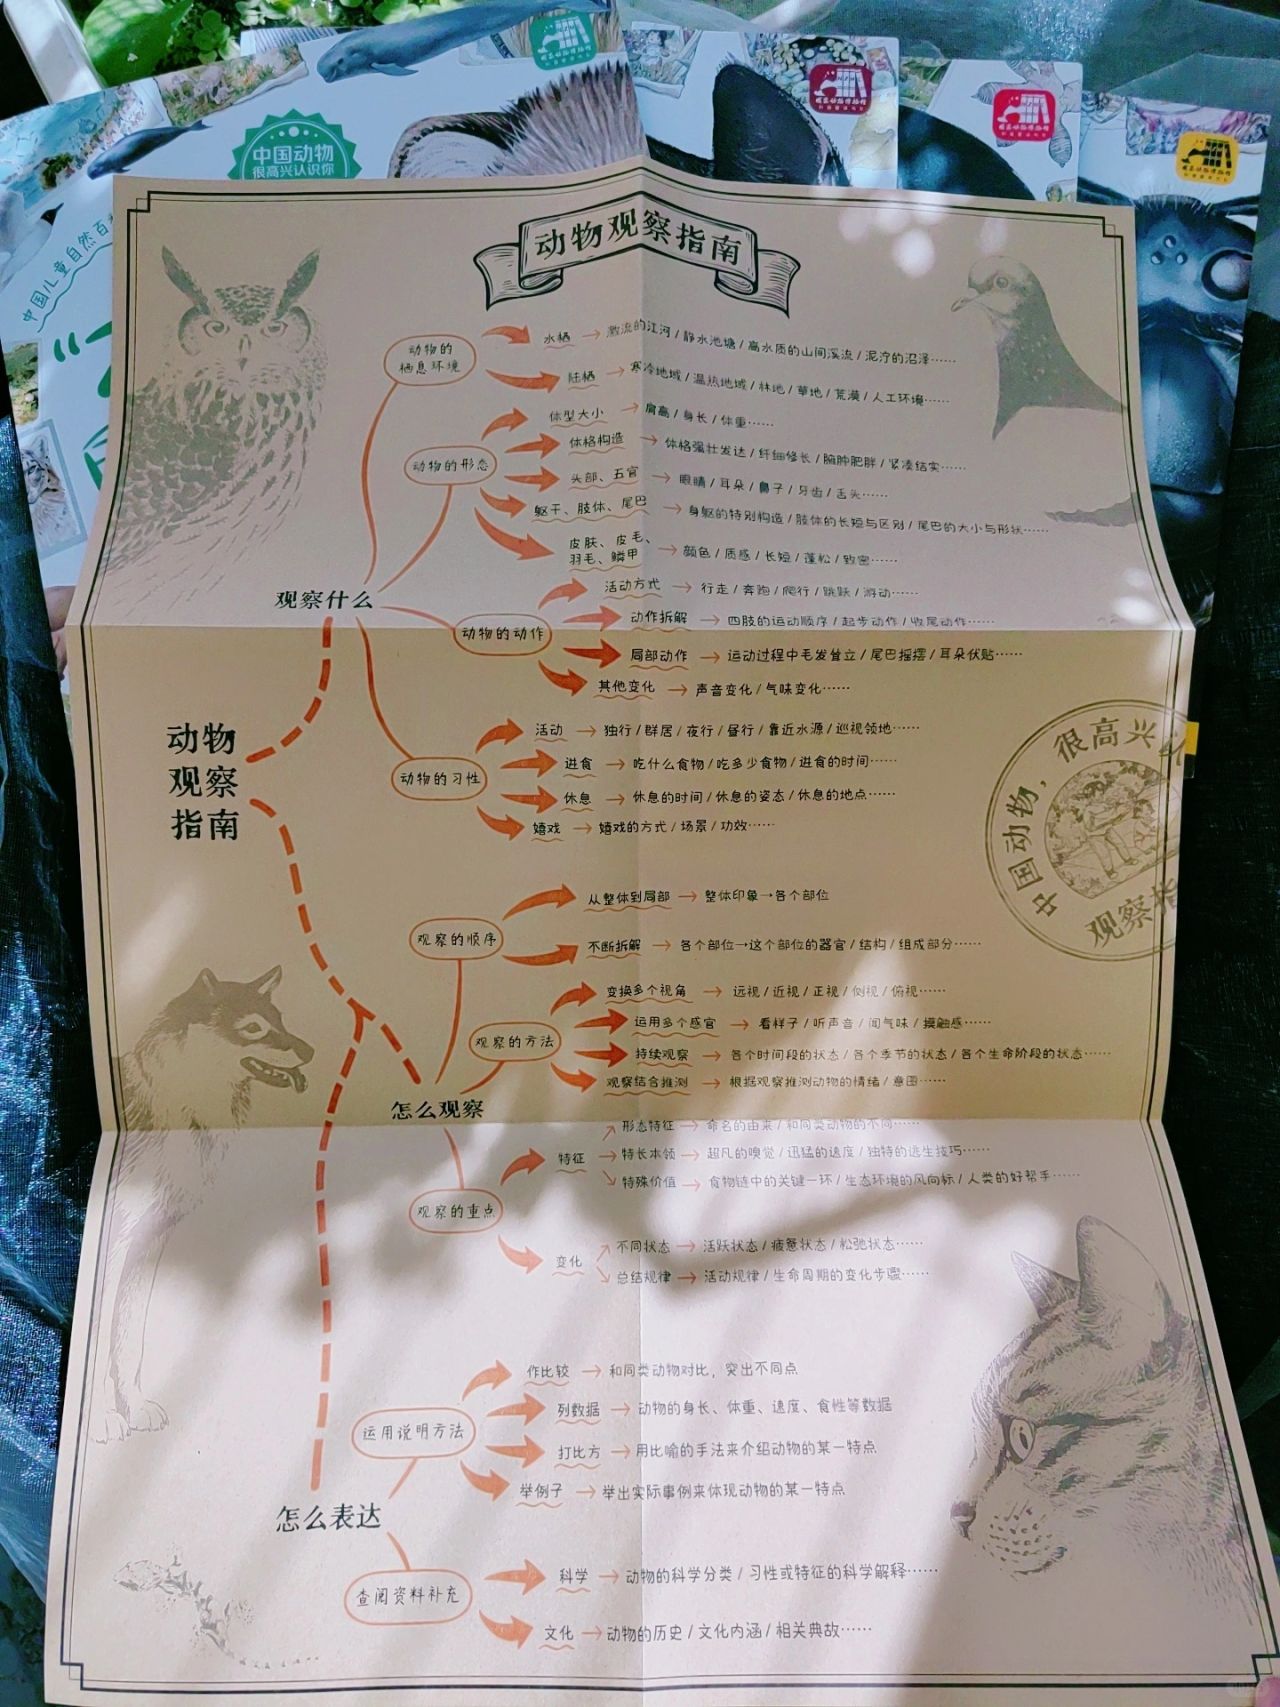 中国动物
很高兴认识你
国家动物博物馆
中国儿童自然百
动物观察指南
动物
观察
指南
观察什么
动物的
栖息环境
水栖 → 激流的江河 / 静水池塘 / 高水质的山间溪流 / 泥泞的沼泽……
陆栖 → 寒冷地域 / 温热地域 / 林地 / 草地 / 荒漠 / 人工环境……
动物的形态
体型大小 → 肩高 / 身长 / 体重……
体格构造 → 体格强壮发达 / 纤细修长 / 臃肿肥胖 / 紧凑结实……
头部、五官 → 眼睛 / 耳朵 / 鼻子 / 牙齿 / 舌头……
躯干、肢体、尾巴 → 身躯的特别构造 / 肢体的长短与区别 / 尾巴的大小与形状……
皮肤、皮毛、
羽毛、鳞甲 → 颜色 / 质感 / 长短 / 蓬松 / 致密……
动物的动作
活动方式 → 行走 / 奔跑 / 爬行 / 跳跃 / 游动……
动作拆解 → 四肢的运动顺序 / 起步动作 / 收尾动作……
局部动作 → 运动过程中毛发耸立 / 尾巴摇摆 / 耳朵伏贴……
其他变化 → 声音变化 / 气味变化……
动物的习性
活动 → 独行 / 群居 / 夜行 / 昼行 / 靠近水源 / 巡视领地……
进食 → 吃什么食物 / 吃多少食物 / 进食的时间……
休息 → 休息的时间 / 休息的姿态 / 休息的地点……
嬉戏 → 嬉戏的方式 / 场景 / 功效……
中国动物，很高兴认
观察指
怎么观察
观察的顺序
从整体到局部 → 整体印象→各个部位
不断拆解 → 各个部位→这个部位的器官 / 结构 / 组成部分……
观察的方法
变换多个视角 → 远视 / 近视 / 正视 / 侧视 / 俯视……
运用多个感官 → 看样子 / 听声音 / 闻气味 / 摸触感……
持续观察 → 各个时间段的状态 / 各个季节的状态 / 各个生命阶段的状态……
观察结合推测 → 根据观察推测动物的情绪 / 意图……
观察的重点
特征
形态特征 → 命名的由来 / 和同类动物的不同……
特长本领 → 超凡的嗅觉 / 迅猛的速度 / 独特的逃生技巧……
特殊价值 → 食物链中的关键一环 / 生态环境的风向标 / 人类的好帮手……
变化
不同状态 → 活跃状态 / 疲惫状态 / 松弛状态……
总结规律 → 活动规律 / 生命周期的变化步骤……
怎么表达
运用说明方法
作比较 → 和同类动物对比，突出不同点
列数据 → 动物的身长、体重、速度、食性等数据
打比方 → 用比喻的手法来介绍动物的某一特点
举例子 → 举出实际事例来体现动物的某一特点
查阅资料补充
科学 → 动物的科学分类 / 习性或特征的科学解释……
文化 → 动物的历史 / 文化内涵 / 相关典故……